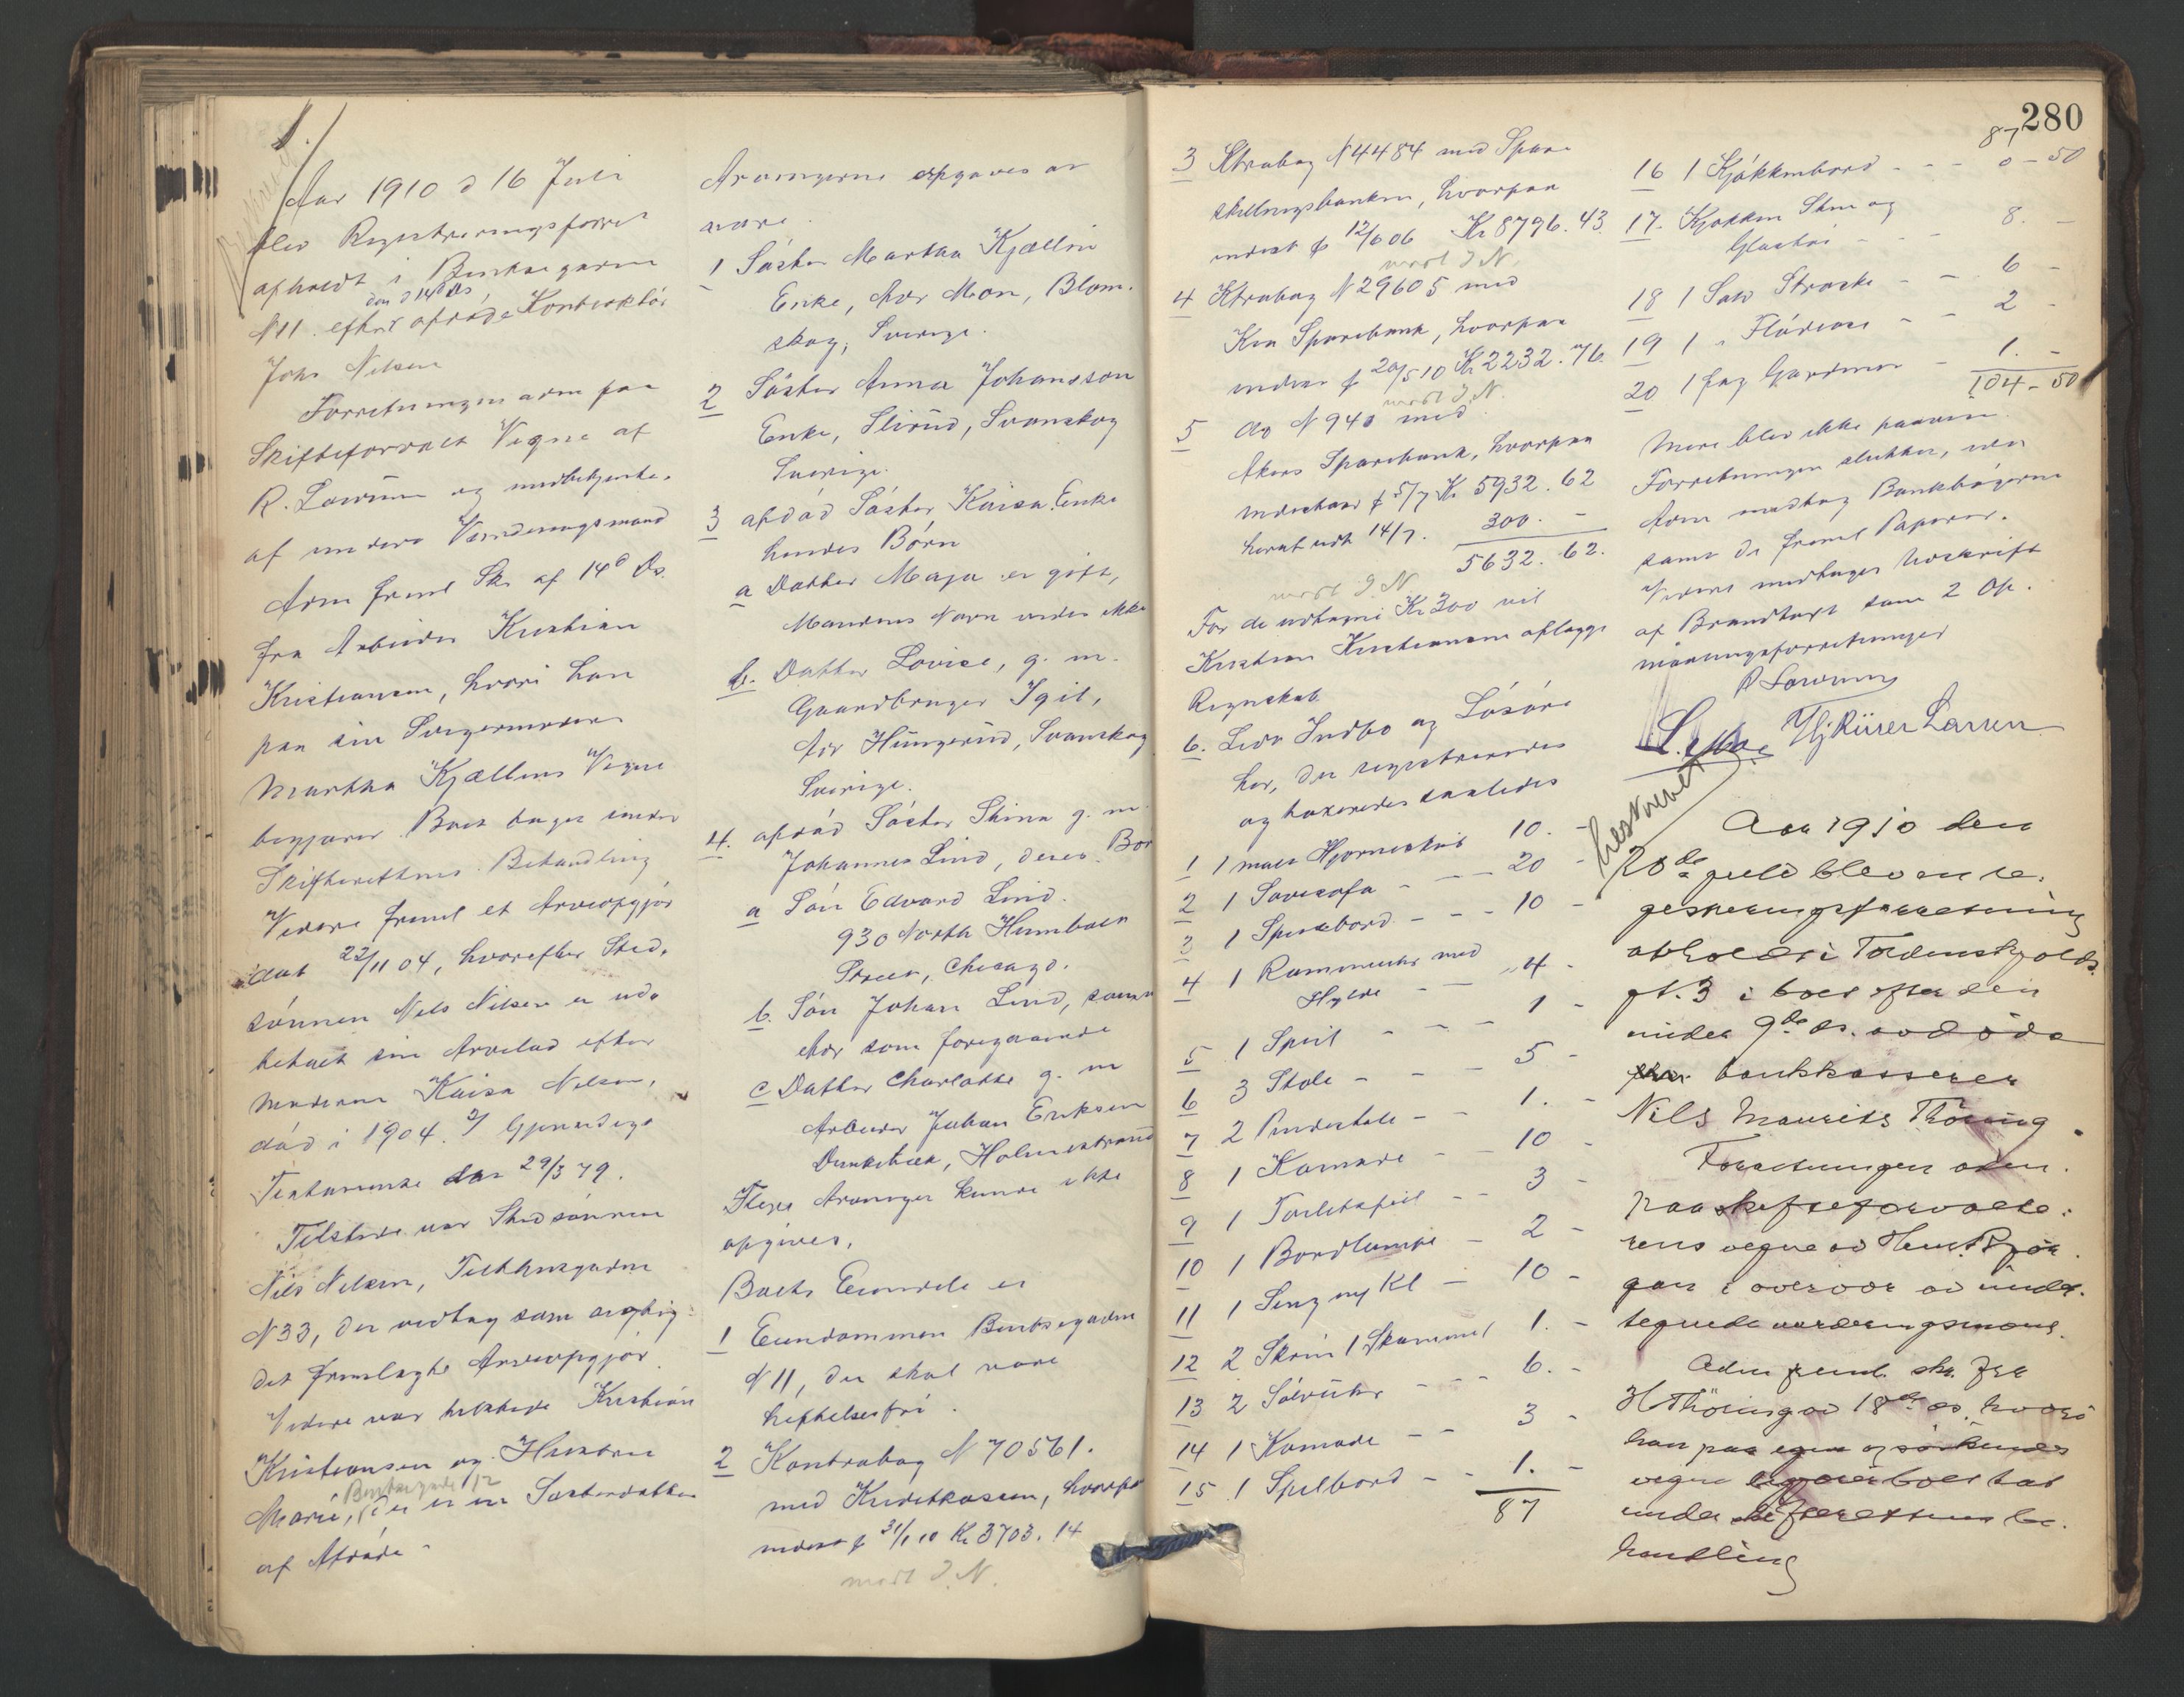 1.
Aar 1910 d 16 Juli
blev Registreringsforret
afholdt i Bentsegaden
den d 14 ds
N 11 efter afdøde Kontraktør
Johs Nilsen
Forretningen adm paa
Skifteforvalt Vegne af
R. Lowum og medbetjente.
af undere Vurderingsmænd
Adm freml Skr af 14d Ds.
fra Arbeider Kristian
Kristiansen, hvori han
paa sin Svigermoders
Martha Kjællins Vegne
begjærer Boet taget under
Skifterettens Behandling
Videre freml et Arveopgjør
dat 22/11 04, hvorefter Sted,
sønnen Nils Nilsen er ud-
betalt sin Arvelod efter
Moderen Kaisa Nilsen,
død i 1904. 2/ Gjensidige
Testamente dat 29/3 79.
Tilstede var Stedsønnen
Nils Nilsen, Tidthmsgaden
N 33, der vedtog som rigtig
det fremlagte Arveopgjør
Videre var tilstede Kristian
Kristiansen og Hustru
Bentsegade 12
Marie, der er en Søsterdatter
af Afdøde -
Arvingerne opgaves at
være.
1 Søster Martha Kjællin
Enke, Adr Mon, Blom-
skog, Sverige.
2 Søster Anna Johansson
Enke, Slirud, Svanskog
Sverige.
3 afdød Søster Kaisa Enke
hendes Børn
a Datter Maja er gift,
Mandens Navn vides ikke
b. Datter Lovise, g. m.
Gaardbruger Igil,
Adr Hungerud, Svanskog
Sverige.
4. afdød Søster Stina g. m
Johannes Lind, deres Bør
a Søn Edvard Lind.
930 North Humbolt
Street, Chicago.
b. Søn Johan Lind, samme
Adr som foregaaende
c Datter Charlotte g. m
Arbeider Johan Eriksen
Dunkebæk, Holmestrand
Flere Arvinger kunde ikke
opgives,
Boets Eiendele er
1 Eiendommen Bentsegaden
N 11, der skal være
heftelsesfri.
2 Kontrabog N 70561.
med Kreditkassen, hvorpaa
indest p 31/1 10 Kr 3703. 14
modt J. N.
280
3 Ktrabog N 4484 med Spare
skillingsbanken, hvorpaa
indest p 12/6 06 Kr 8796. 43.
modt J N.
4 Ktrabog N 29605 med
Kra Sparebank, hvorpaa
indest p 20/5 10 Kr 2232. 76.
modt J. N.
5 do N 940 med
Akers Sparebank, hvorpaa
indestaar p 5/7 Kr 5932. 62
herat udt 14/7. 300. -
5632. 62.
modt J. N
For de udtagne Kr 300 vil
Kristian Kristiansen aflægge
Regnskab
6. Lidt Indbo og Løsøre
her, der registreredes
og taxeredes saaledes
1 1 malt Hjørneskab 10. -
2 1 Sovesofa - - - 20 -
3 1 Spisebord - - - 10 -
4 1 Rammeuhr med
Hylde - - 4 -
5 1 Speil - - - 1 -
6 3 Stole - - - 5 -
7 2 Pindestole - - 1. -
8 1 Komode - - 10 -
9 1 Toiletspeil - - 3 -
10 1 Bordlampe - 2 -
11 1 Seng m Kl - 10 -
12 2 Skrin 1 Skammel 1. -
13 2 Sølvuhr - - - 6. -
14 1 Komode - - 3 -
15 1 Spilbord - - 1. -
87
87
16 1 Kjøkkenbord - - - 0 - 50
17. Kjøkken Sten og
Glastøi - - - 8. -
18 1 Sæt Stræke - - 6 -
19 1 " Flødeose - - 2 -
20 1 Fag Gardiner - 1. -
104 - 50
Mere blev ikke paavist
Forretningen sluttet, idet
Adm modtog Bankbøgerne
samt de freml Papirer.
Videre modtages Udskrift
af Brandtaxt samt 2 Op.
maalingsforretninger
R Lowum
Hj. Riiser Larsen
beskrevet
Aar 1910 den
20de juli blev en re-
gistreringsforretning
afholdt i Tordenskjolds
gt. 3 i boet efter den
under 9de ds. avdøde
bankkasserer
Nils Maurits Thöring
Forretningen adm.
paa skifteforvalte-
rens vegne av Henr. Bjør
gan i overvær av under-
tegnede vurderingsmænd.
Adm freml. skr. fra
H Thöring av 18de ds. hvori
han paa egne og søskendes
vegne begjærer boet tat
under skifterettens be-
handling